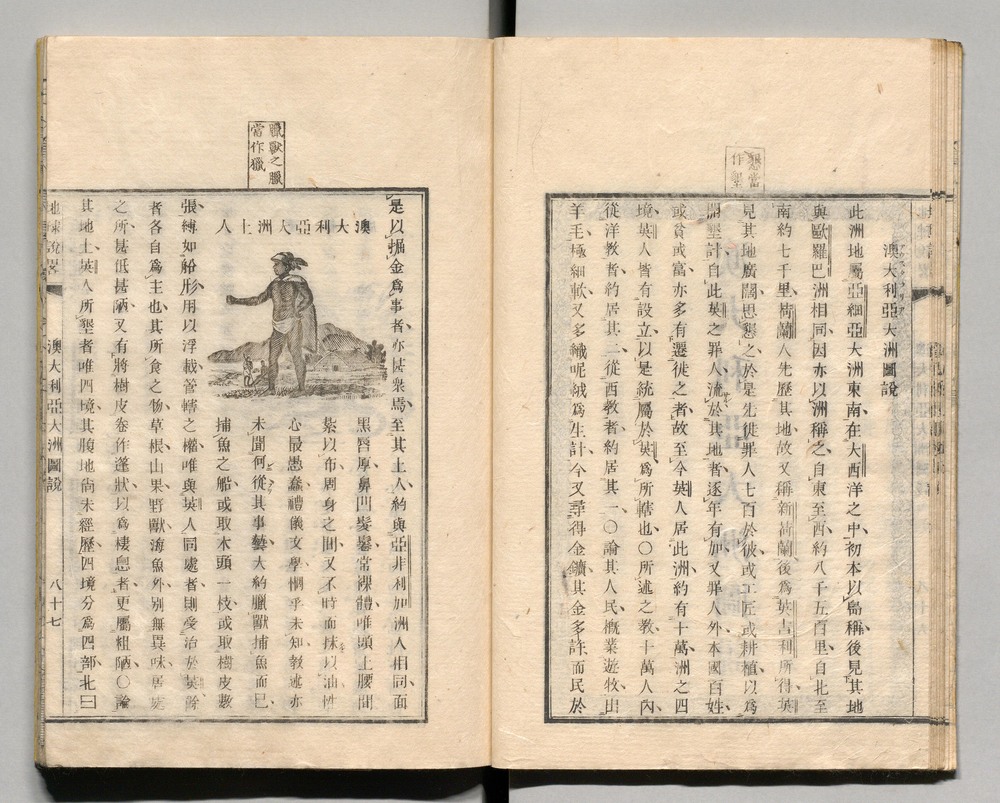 懇當
作墾
澳大利亞大洲圖說
此洲地屬亞細亞大洲東南在大西洋之中初本以島稱後見其地
與歐羅巴洲相同因亦以洲稱之自東至西約八千五百里自北至
南約七千里荷蘭人先歷其地故又稱新荷蘭後為英吉利所得英
見其地廣闊思懇之於是先徙罪人七百於彼或工匠或耕植以為
開墾計自此英之罪人流於其地者逐年有加又罪人外本國百姓
或貧或富亦多有遷徙之者故至今英人居此洲約有十萬洲之四
境英人皆有設立以是統屬於英為所轄也〇所述之教十萬人內
從洋教者約居其二從西教者約居其一〇論其人民概業遊牧出
羊毛極細軟又多織呢絨為生計今又尋得金鑛其金多許而民於
臘獸之臘
當作獵
是以掘金為事者亦甚衆焉至其土人約與亞非利加洲人相同面
澳大利亞大洲土人
黑唇厚鼻凹髮鬈常裸體唯頭上腰間
紮以布周身之間又不時而抹以油性
心最愚蠢禮儀文學惘乎未知教述亦
未聞何從其事藝大約臘獸捕魚而已
捕魚之船或取木頭一枝或取樹皮數
張縛如船形用以浮載管轄之權唯與英人同處者則受治於英餘
者各自為主也其所食之物草根山果野獸海魚外別無異味居處
之所甚低甚陋又有將樹皮卷作蓬狀以為棲息者更屬粗陋〇論
其地土英人所墾者唯四境其腹地尚未經歷四境分為四部北曰
地球說畧
澳大利亞大洲圖說
八十七